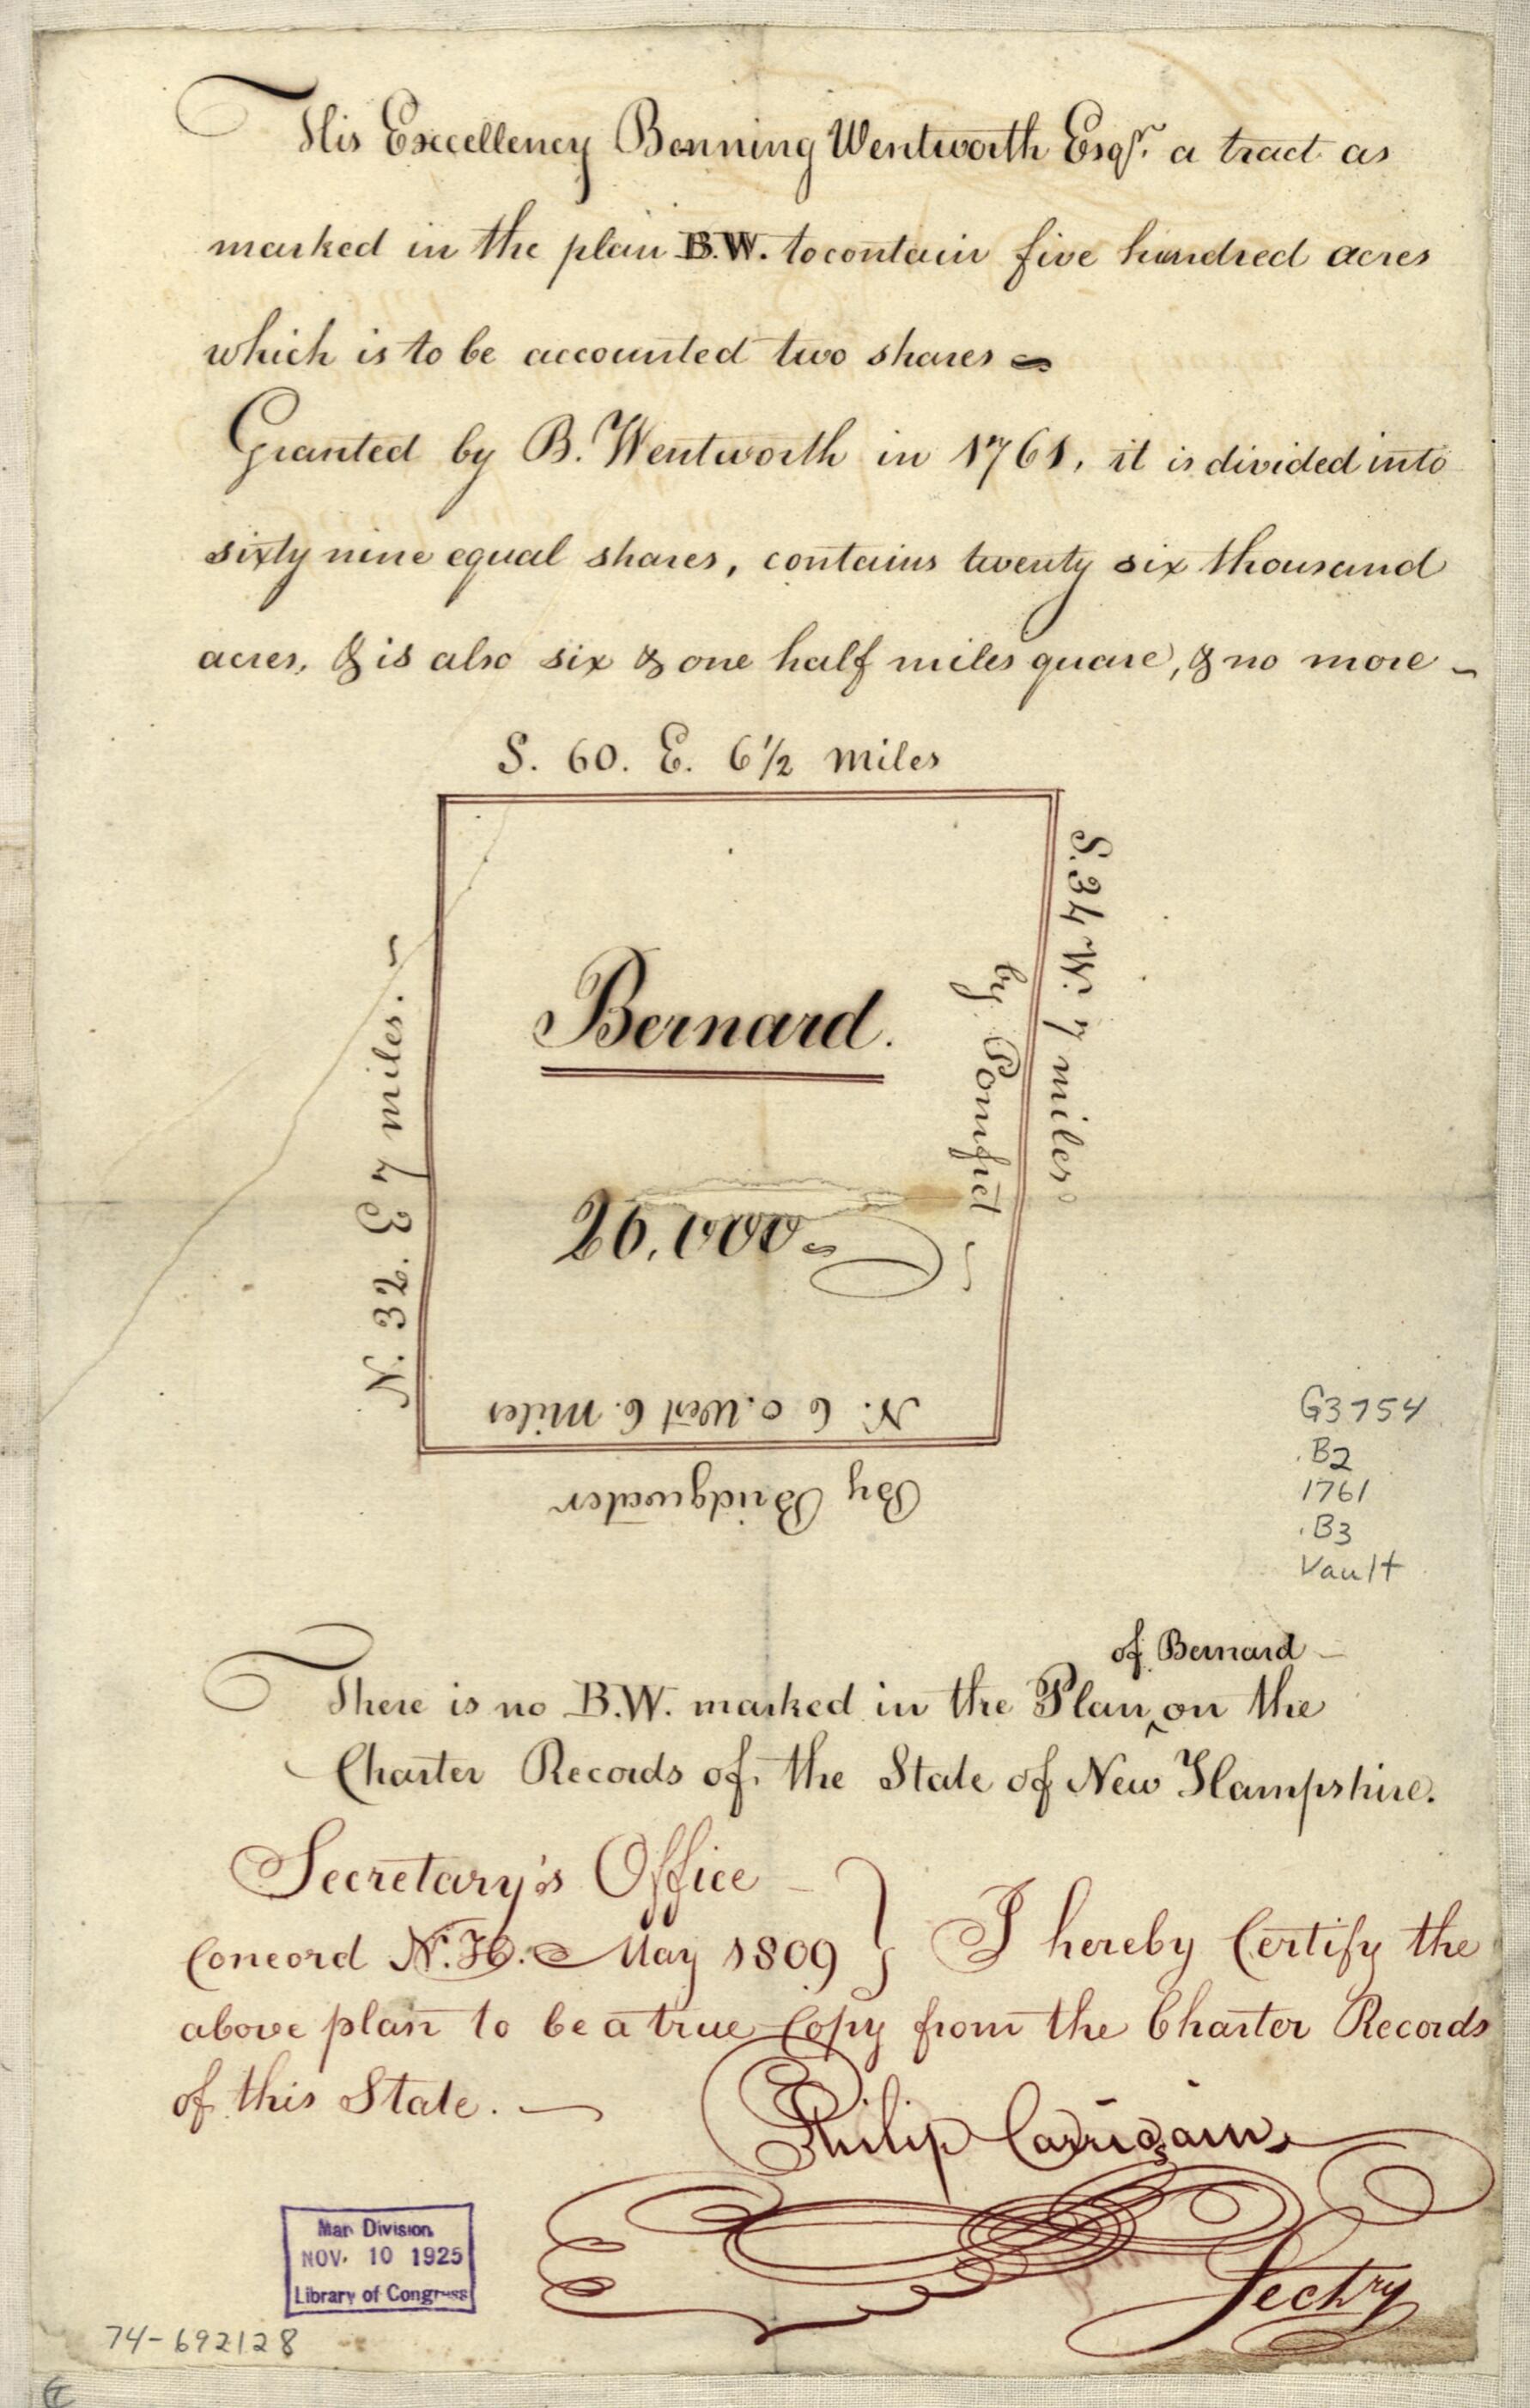 His Excellency Benning Wentworth Esqr. a tract as
marked in the plan B.W. to contain five hundred acres
which is to be accounted two shares
Granted by B. Wentworth in 1761, it is divided into
sixty nine equal shares, contains twenty six thousand
acres, & is also six & one half miles quare, & no more
S. 60. E. 6½ miles
S. 34 W. 7 miles
by Pomfret
N. 32. E 7 miles.
Bernard.
26,000
N. 60. West 6. Miles
By Bridgwater
G3754
.B2
1761
.B3
Vault
of Bernard
There is no B.W. marked in the Plan ‸ on the
Charter Records of the State of New Hampshire.
Secretary's Office
Concord N.H. May 1809 } I hereby Certify the
above plan to be a true Copy from the Charter Records
of this State.
Philip Carrigain
Sectry
Map Division
NOV. 10 1925
Library of Congress
74-692128